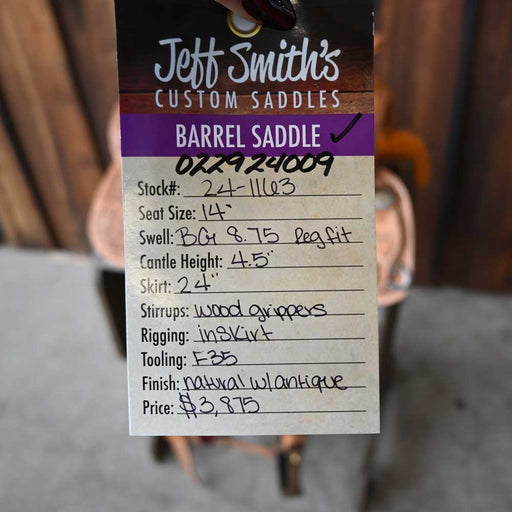 Jeff Smith's
CUSTOM SADDLES
BARREL SADDLE ✓
022924009
Stock#: 24-1163
Seat Size: 14"
Swell: BG 8.75 Leg fit
Cantle Height: 4.5"
Skirt: 24"
Stirrups: wood grippers
Rigging: inskirt
Tooling: F35
Finish: natural w/antique
Price: $3,875